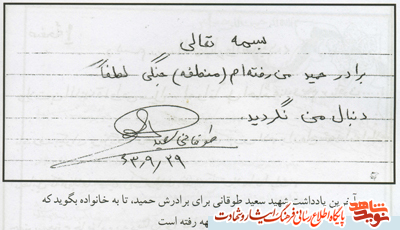 بسمه تعالی
برادر حمید من رفته‌ام (منطقه) جنگی لطفاً
دنبال من نگردید.
طوقانی سعید
۶۳,۹,۲۹
آخرین یادداشت شهید سعید طوقانی برای برادرش حمید، تا به خانواده بگوید که
به رفته است
نوید شاهد
پایگاه اطلاع رسانی فرهنگ ایثار و شهادت